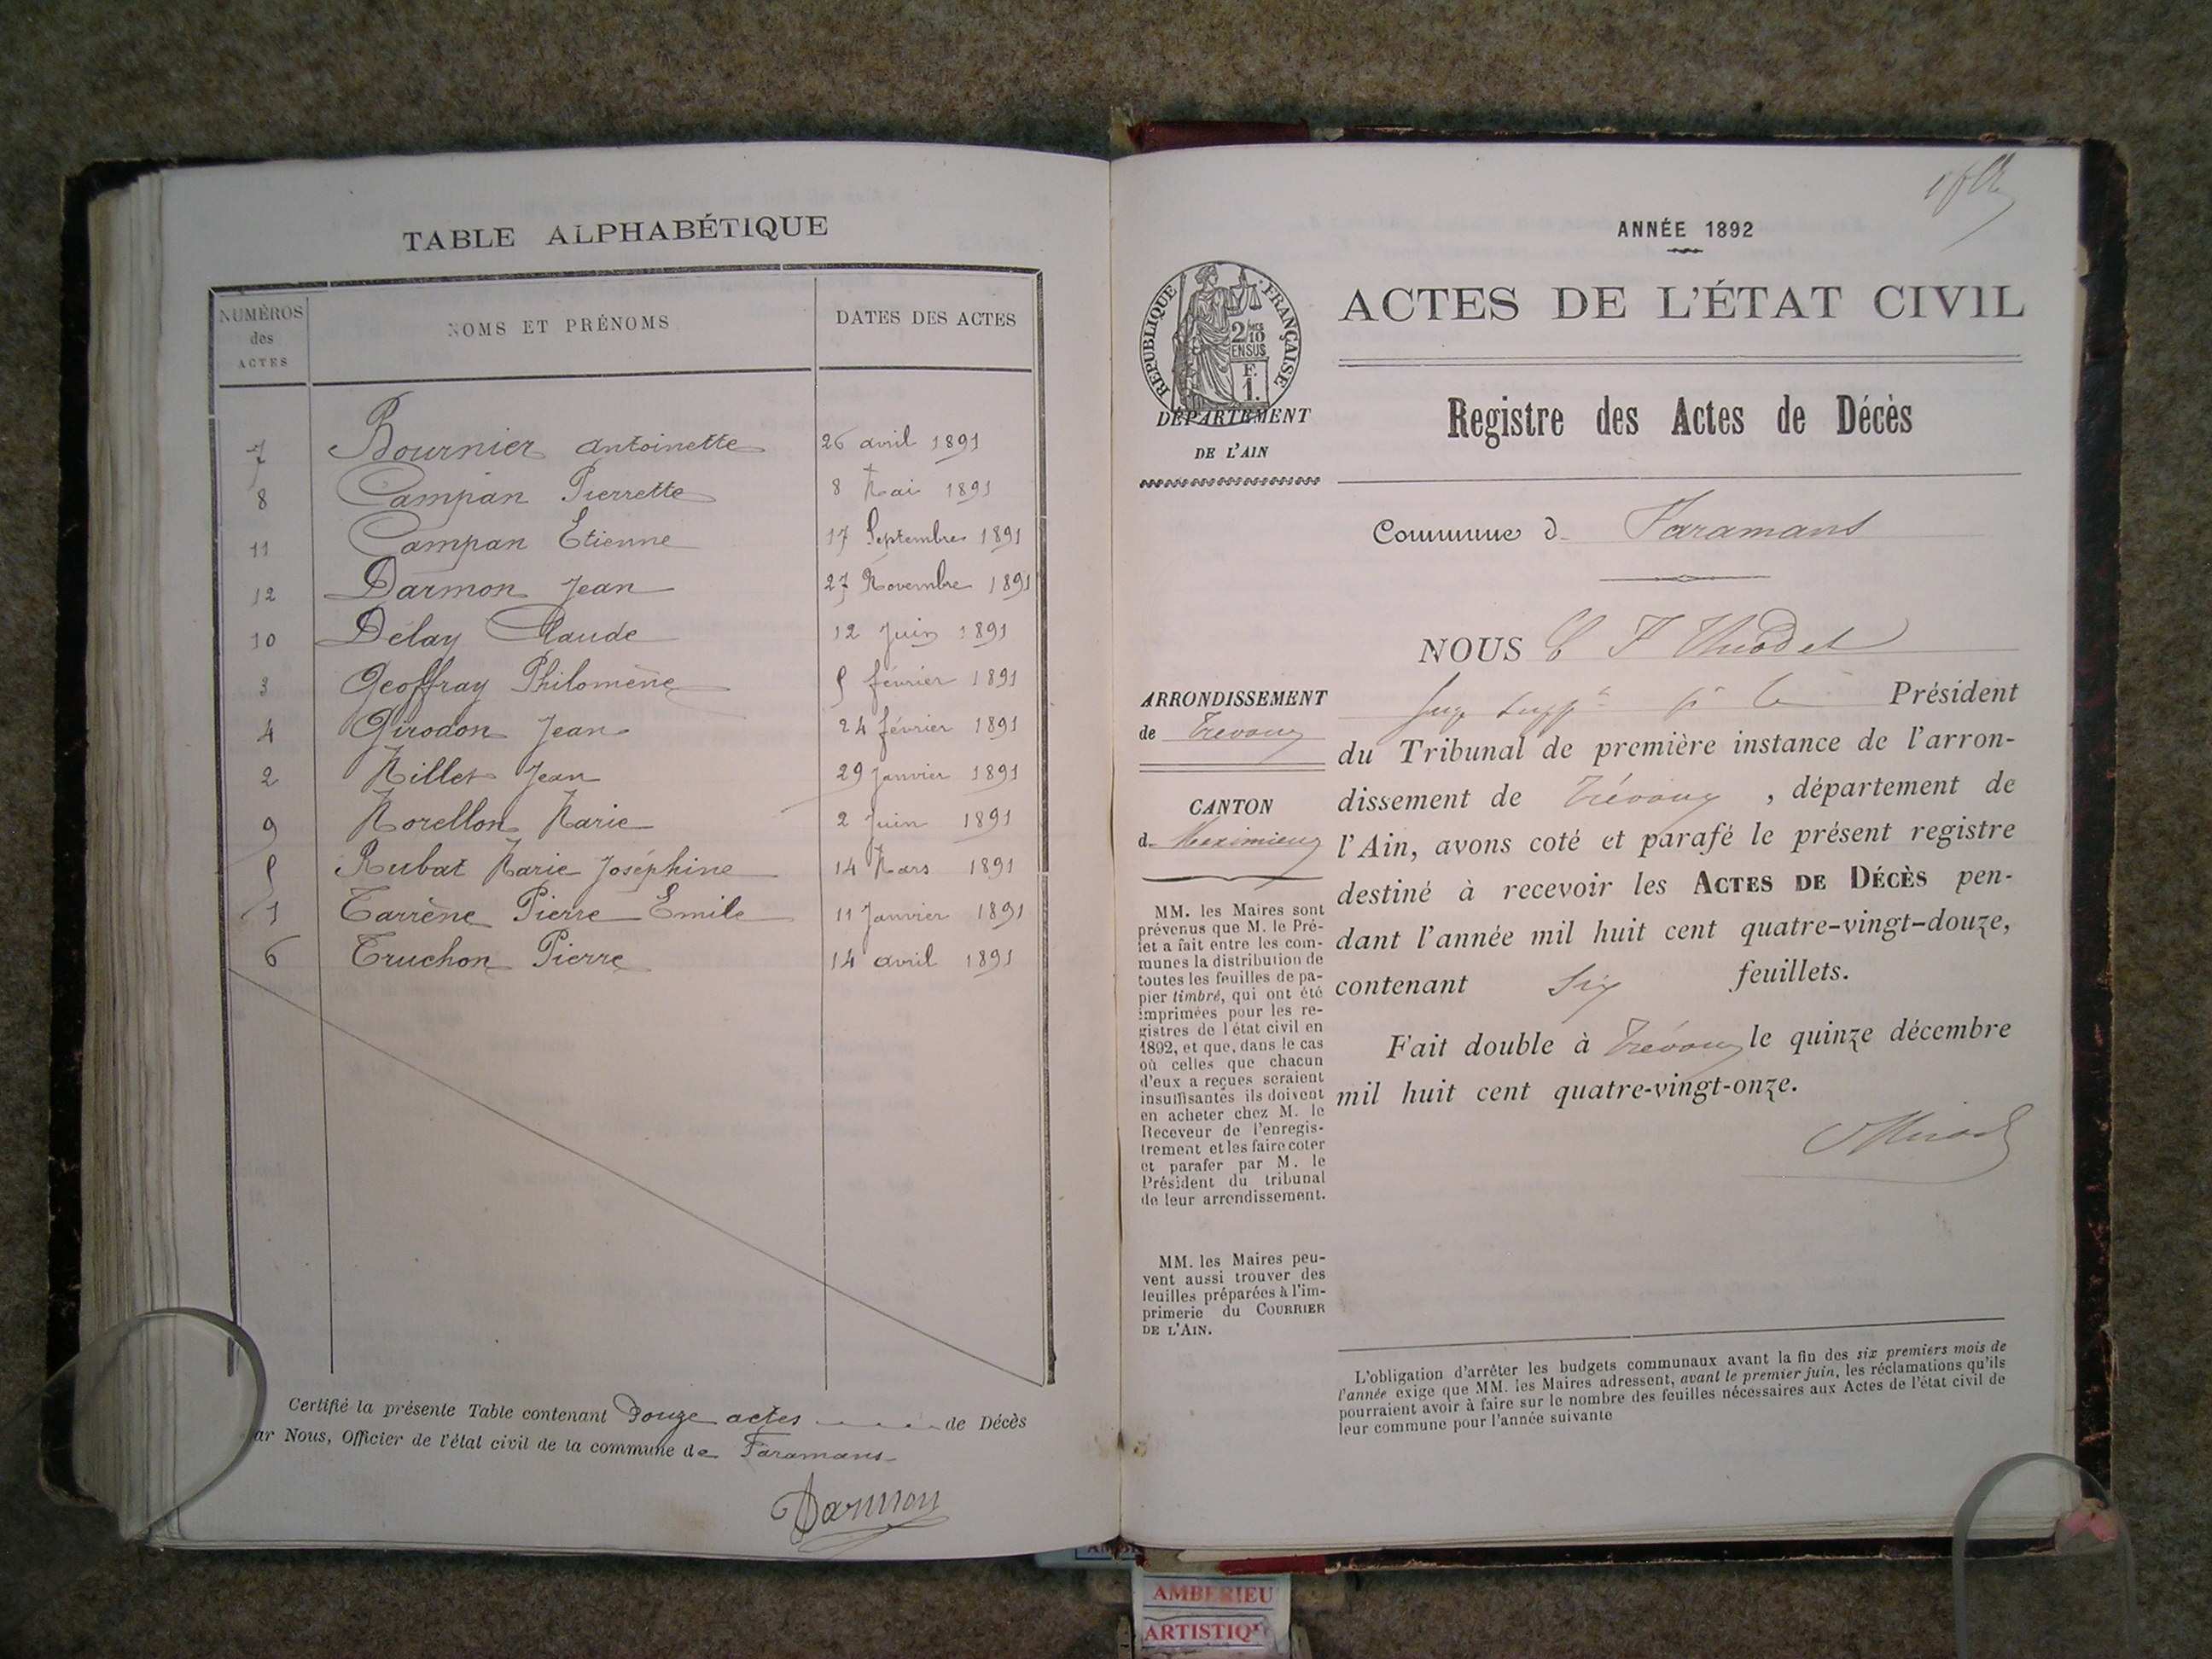 TABLE ALPHABÉTIQUE
NUMÉROS des ACTES NOMS ET PRÉNOMS DATES DES ACTES
7 Bournier Antoinette 26 avril 1891
8 Campan Pierrette 8 Mai 1891
11 Campan Etienne 17 Septembre 1891
12 Darmon Jean 27 Novembre 1891
10 Délay Claude 12 Juin 1891
3 Geoffray Philomène 5 février 1891
4 Girodon Jean 24 février 1891
2 Millet Jean 29 Janvier 1891
9 Morellon Marie 2 Juin 1891
5 Rubat Marie Joséphine 14 Mars 1891
1 Tarrène Pierre Emile 11 Janvier 1891
6 Truchon Pierre 14 avril 1891
Certifié la présente Table contenant Douze actes de Décès
ar Nous, Officier de l'état civil de la commune de Faramans
Darmon
ANNÉE 1892
ACTES DE L'ÉTAT CIVIL
RÉPUBLIQUE FRANÇAISE
2/10 EN SUS
F. 1.
DÉPARTEMENT
DE L'AIN
Registre des Actes de Décès
Commune d Faramans
NOUS
ARRONDISSEMENT
de Trévoux
Président
du Tribunal de première instance de l'arron-
dissement de Trévoux, département de
l'Ain, avons coté et parafé le présent registre
destiné à recevoir les ACTES DE DÉCÈS pen-
dant l'année mil huit cent quatre-vingt-douze,
contenant Six feuillets.
Fait double à Trévoux le quinze décembre
mil huit cent quatre-vingt-onze.
CANTON
d Meximieux
MM. les Maires sont
prévenus que M. le Pré-
fet a fait entre les com-
munes la distribution de
toutes les feuilles de pa-
pier timbré, qui ont été
imprimées pour les re-
gistres de l'état civil en
1892, et que, dans le cas
où celles que chacun
d'eux a reçues seraient
insuffisantes ils doivent
en acheter chez M. le
Receveur de l'enregis-
trement et les faire coter
et parafer par M. le
Président du tribunal
de leur arrondissement.
MM. les Maires peu-
vent aussi trouver des
feuilles préparées à l'im-
primerie du COURRIER
DE L'AIN.
L'obligation d'arrêter les budgets communaux avant la fin des six premiers mois de
l'année exige que MM. les Maires adressent, avant le premier juin, les réclamations qu'ils
pourraient avoir à faire sur le nombre des feuilles nécessaires aux Actes de l'état civil de
leur commune pour l'année suivante
AMBERIEU
ARTISTIQ